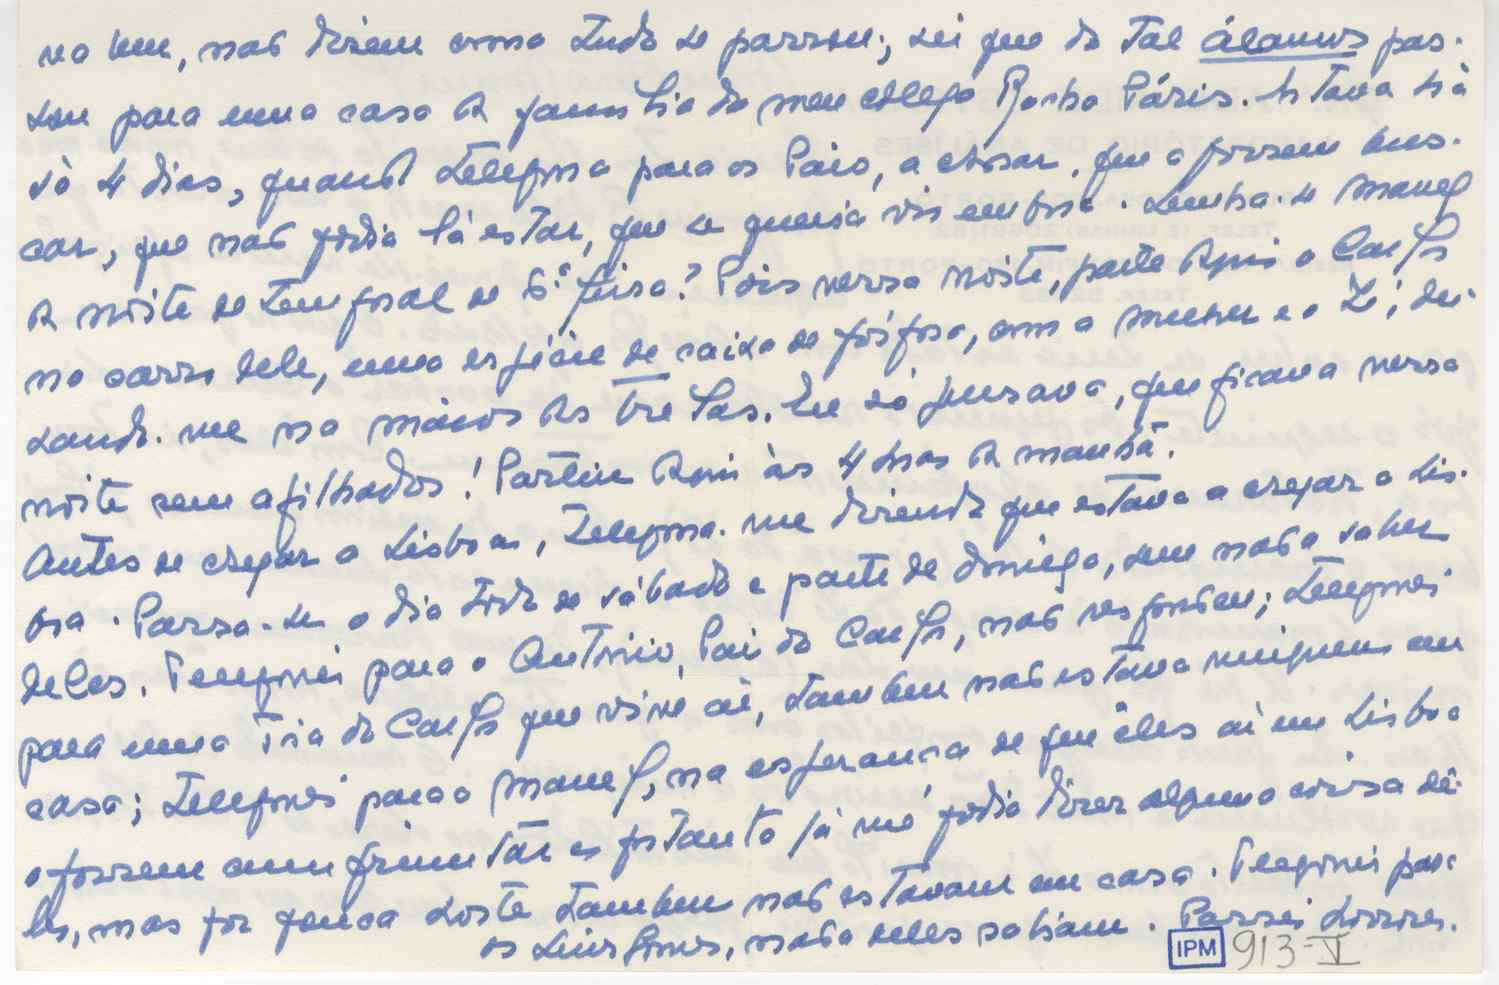 na bem, nada dizem como tudo se passou; sei que do tal álamos pas-
sou para uma casa da familia do meu colega Rocha Páris. Estava lá
só 4 dias, quando telefona para os Pais, a chorar, que a fossem bus-
car, que não podia lá estar, que se queria vir embora. Lembra-se Manel
da noite de temporal de 6ª feira? Pois nessa noite, parte daqui o Carlos
no carro dele, uma espécie de caixa de fósforo, com a mulher e o Zé; dei-
xando-me na mãos as trelas. Eu só pensava, que ficava nessa
noite sem afilhados! Partiu daqui às 4 horas da manhã.
Antes de chegar a Lisboa, telefona-me dizendo que estava a chegar a Lis-
boa. Passa-se o dia todo de sábado e parte de domingo, sem nada saber
deles. Telefonei para o António, Pai do Carlos, não respondeu; telefonei
para uma Tia do Carlos que vive aí, tambem não estava ninguem em
casa; telefonei para o Manel, na esperança de que êles aí em Lisboa
o fossem cumprimentar e portanto já me podia dizer alguma coisa dê-
les, mas por pouca sorte tambem não estavam em casa. Telefonei para
os Luis Gomes, nada deles sabiam. Passei horrores.
IPM 913-V